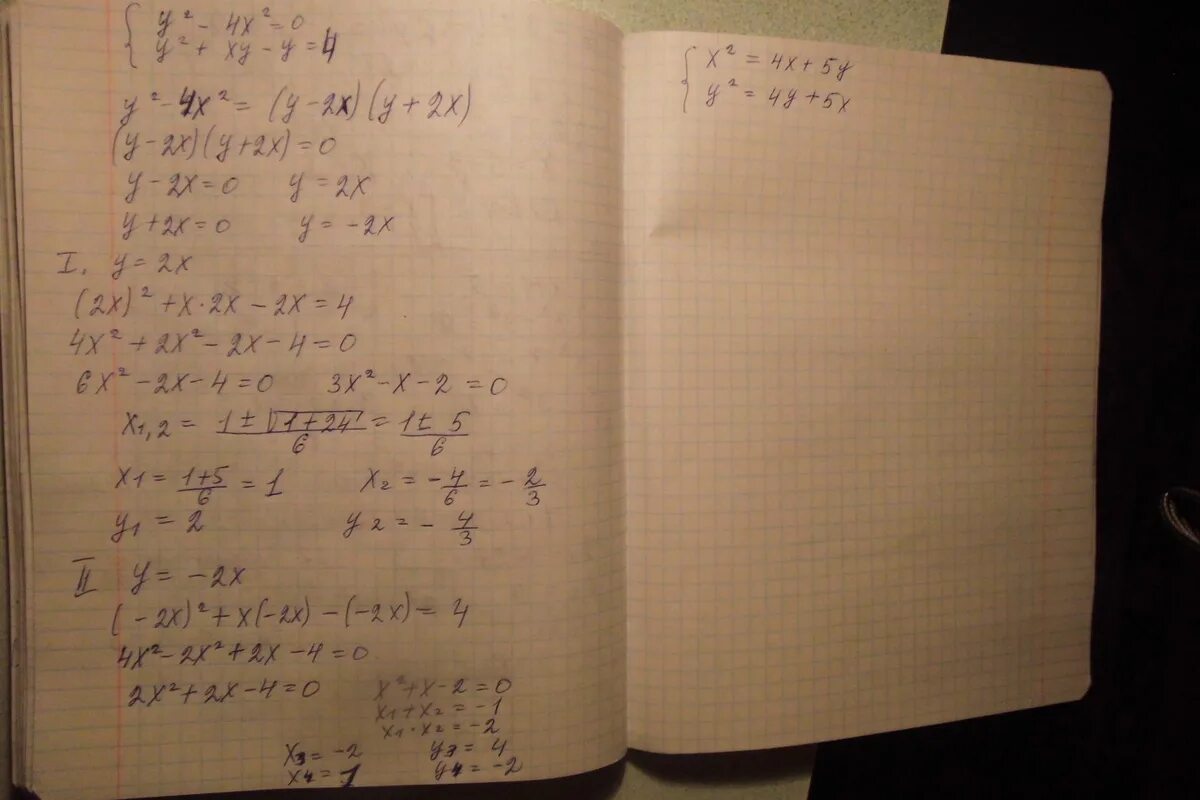 { y² - 4x² = 0
y² + xy - y = 4
y² - 4x² = (y - 2x)(y + 2x)
(y - 2x)(y + 2x) = 0
y - 2x = 0 y = 2x
y + 2x = 0 y = -2x
I. y = 2x
(2x)² + x · 2x - 2x = 4
4x² + 2x² - 2x - 4 = 0
6x² - 2x - 4 = 0 3x² - x - 2 = 0
x₁,₂ = (1 ± √(1 + 24))/6 = (1 ± 5)/6
x₁ = (1+5)/6 = 1 x₂ = -4/6 = -2/3
y₁ = 2 y₂ = -4/3
II y = -2x
(-2x)² + x(-2x) - (-2x) = 4
4x² - 2x² + 2x - 4 = 0
2x² + 2x - 4 = 0 x² + x - 2 = 0
x₁ + x₂ = -1
x₁ · x₂ = -2
x₃ = -2 y₃ = 4
x₄ = 1 y₄ = -2
{ x² = 4x + 5y
y² = 4y + 5x